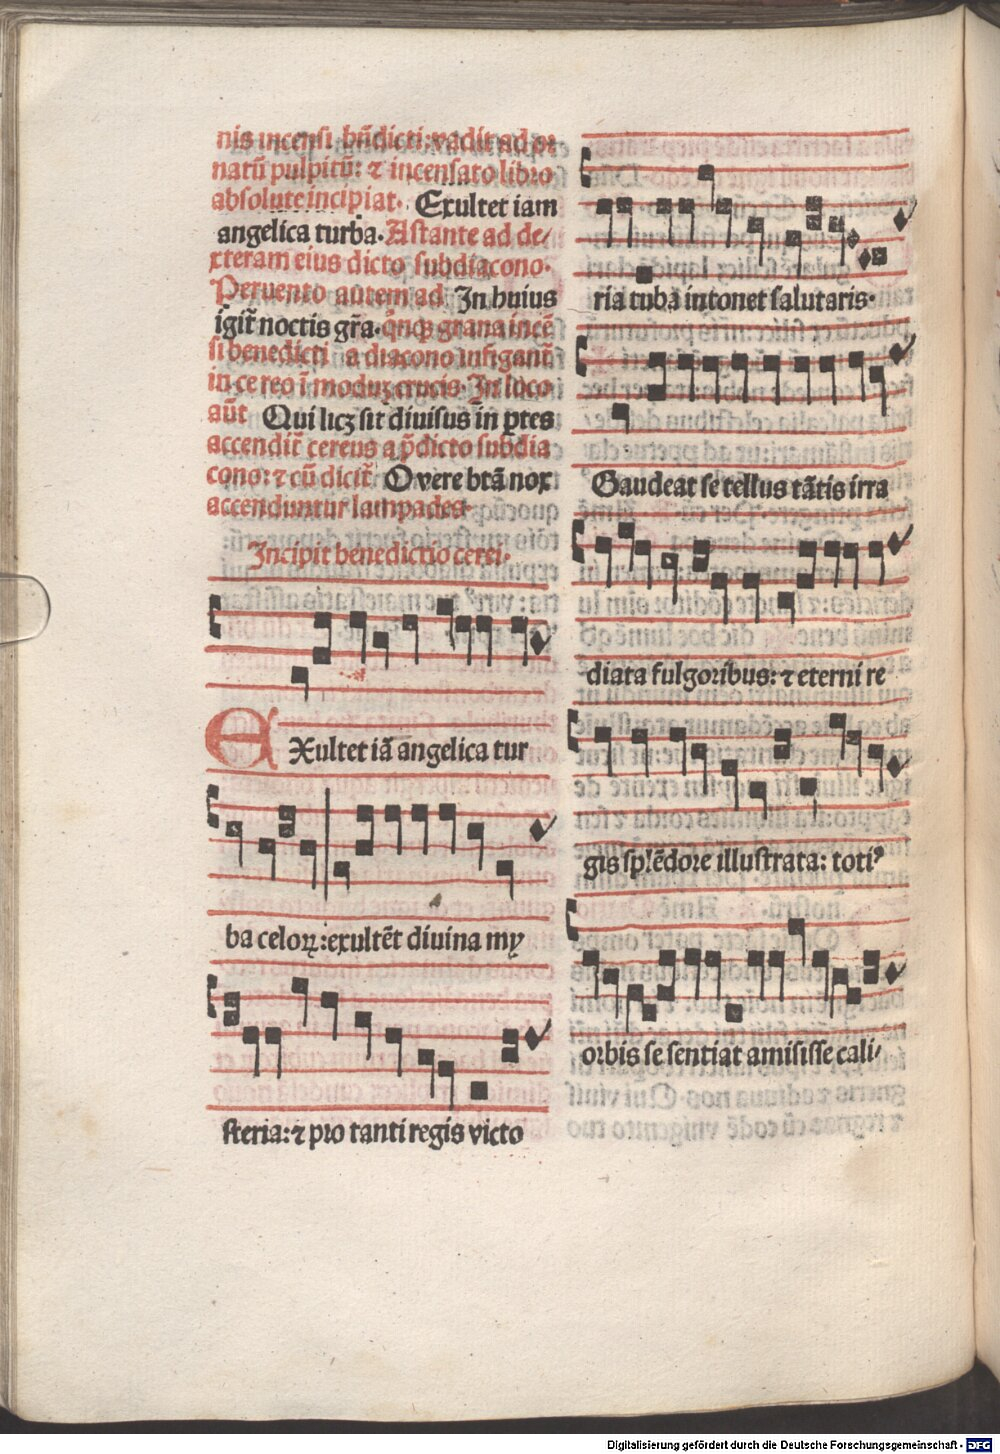 nis incensi bn̄dicti: vadit ad or
natū pulpitū: ⁊ incensato libro
absolute incipiat. Exultet iam
angelica turba. Astante ad de/
xteram eius dicto subdiacono.
Peruento autem ad In huius
igit̄ noctis gr̄a. qn̄qꝫ grana incē
si benedicti a diacono infigant̄
in cereo ī moduꝫ crucis. In loco
aūt Qui licꝫ sit diuisus in ꝑtes
accendit̄ cereus a p̄dicto subdia
cono: ⁊ cū dicit̄ O vere btā nox
accenduntur lampades.
Incipit benedictio cerei.
EXultet iā angelica tur
ba celoꝝ: exultēt diuina my
steria: ⁊ pro tanti regis victo
ria tuba intonet salutaris.
Gaudeat se tellus tātis irra
diata fulgoribus: ⁊ eterni re
gis splēdore illustrata: toti⁹
orbis se sentiat amisisse cali/
Digitalisierung gefördert durch die Deutsche Forschungsgemeinschaft - DFG